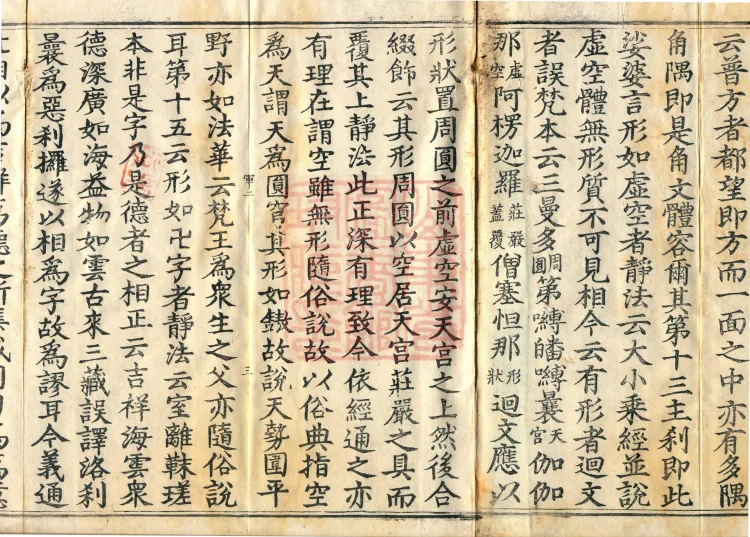 云普方者都望即方而一面之中亦有多隅
角隅即是角文體容爾其第十三主刹即此
娑婆言形如虛空者靜法云大小乘經並說
虛空體無形質不可見相今云有形者迴文
者誤梵本云三曼多周圓第縛皤嚩曩天宮伽伽
那虛空阿楞迦羅莊嚴蓋覆僧塞怛那形狀迴文應以
形狀置周圓之前虛空安天宮之上然後合
綴飾云其形周圓以空居天宮莊嚴之具而
覆其上靜法此正深有理致今依經通之亦
有理在謂空雖無形隨俗說故以俗典指空
為天謂天為圓穹其形如鏊故說天勢圍平
軍二 三
野亦如法華云梵王為衆生之父亦隨俗說
耳第十五云形如卍字者靜法云室離靺瑳
本非是字乃是德者之相正云吉祥海雲衆
德深廣如海益物如雲古來三藏誤譯洛刹
曩為惡刹攞遂以相為字故為謬耳今義通